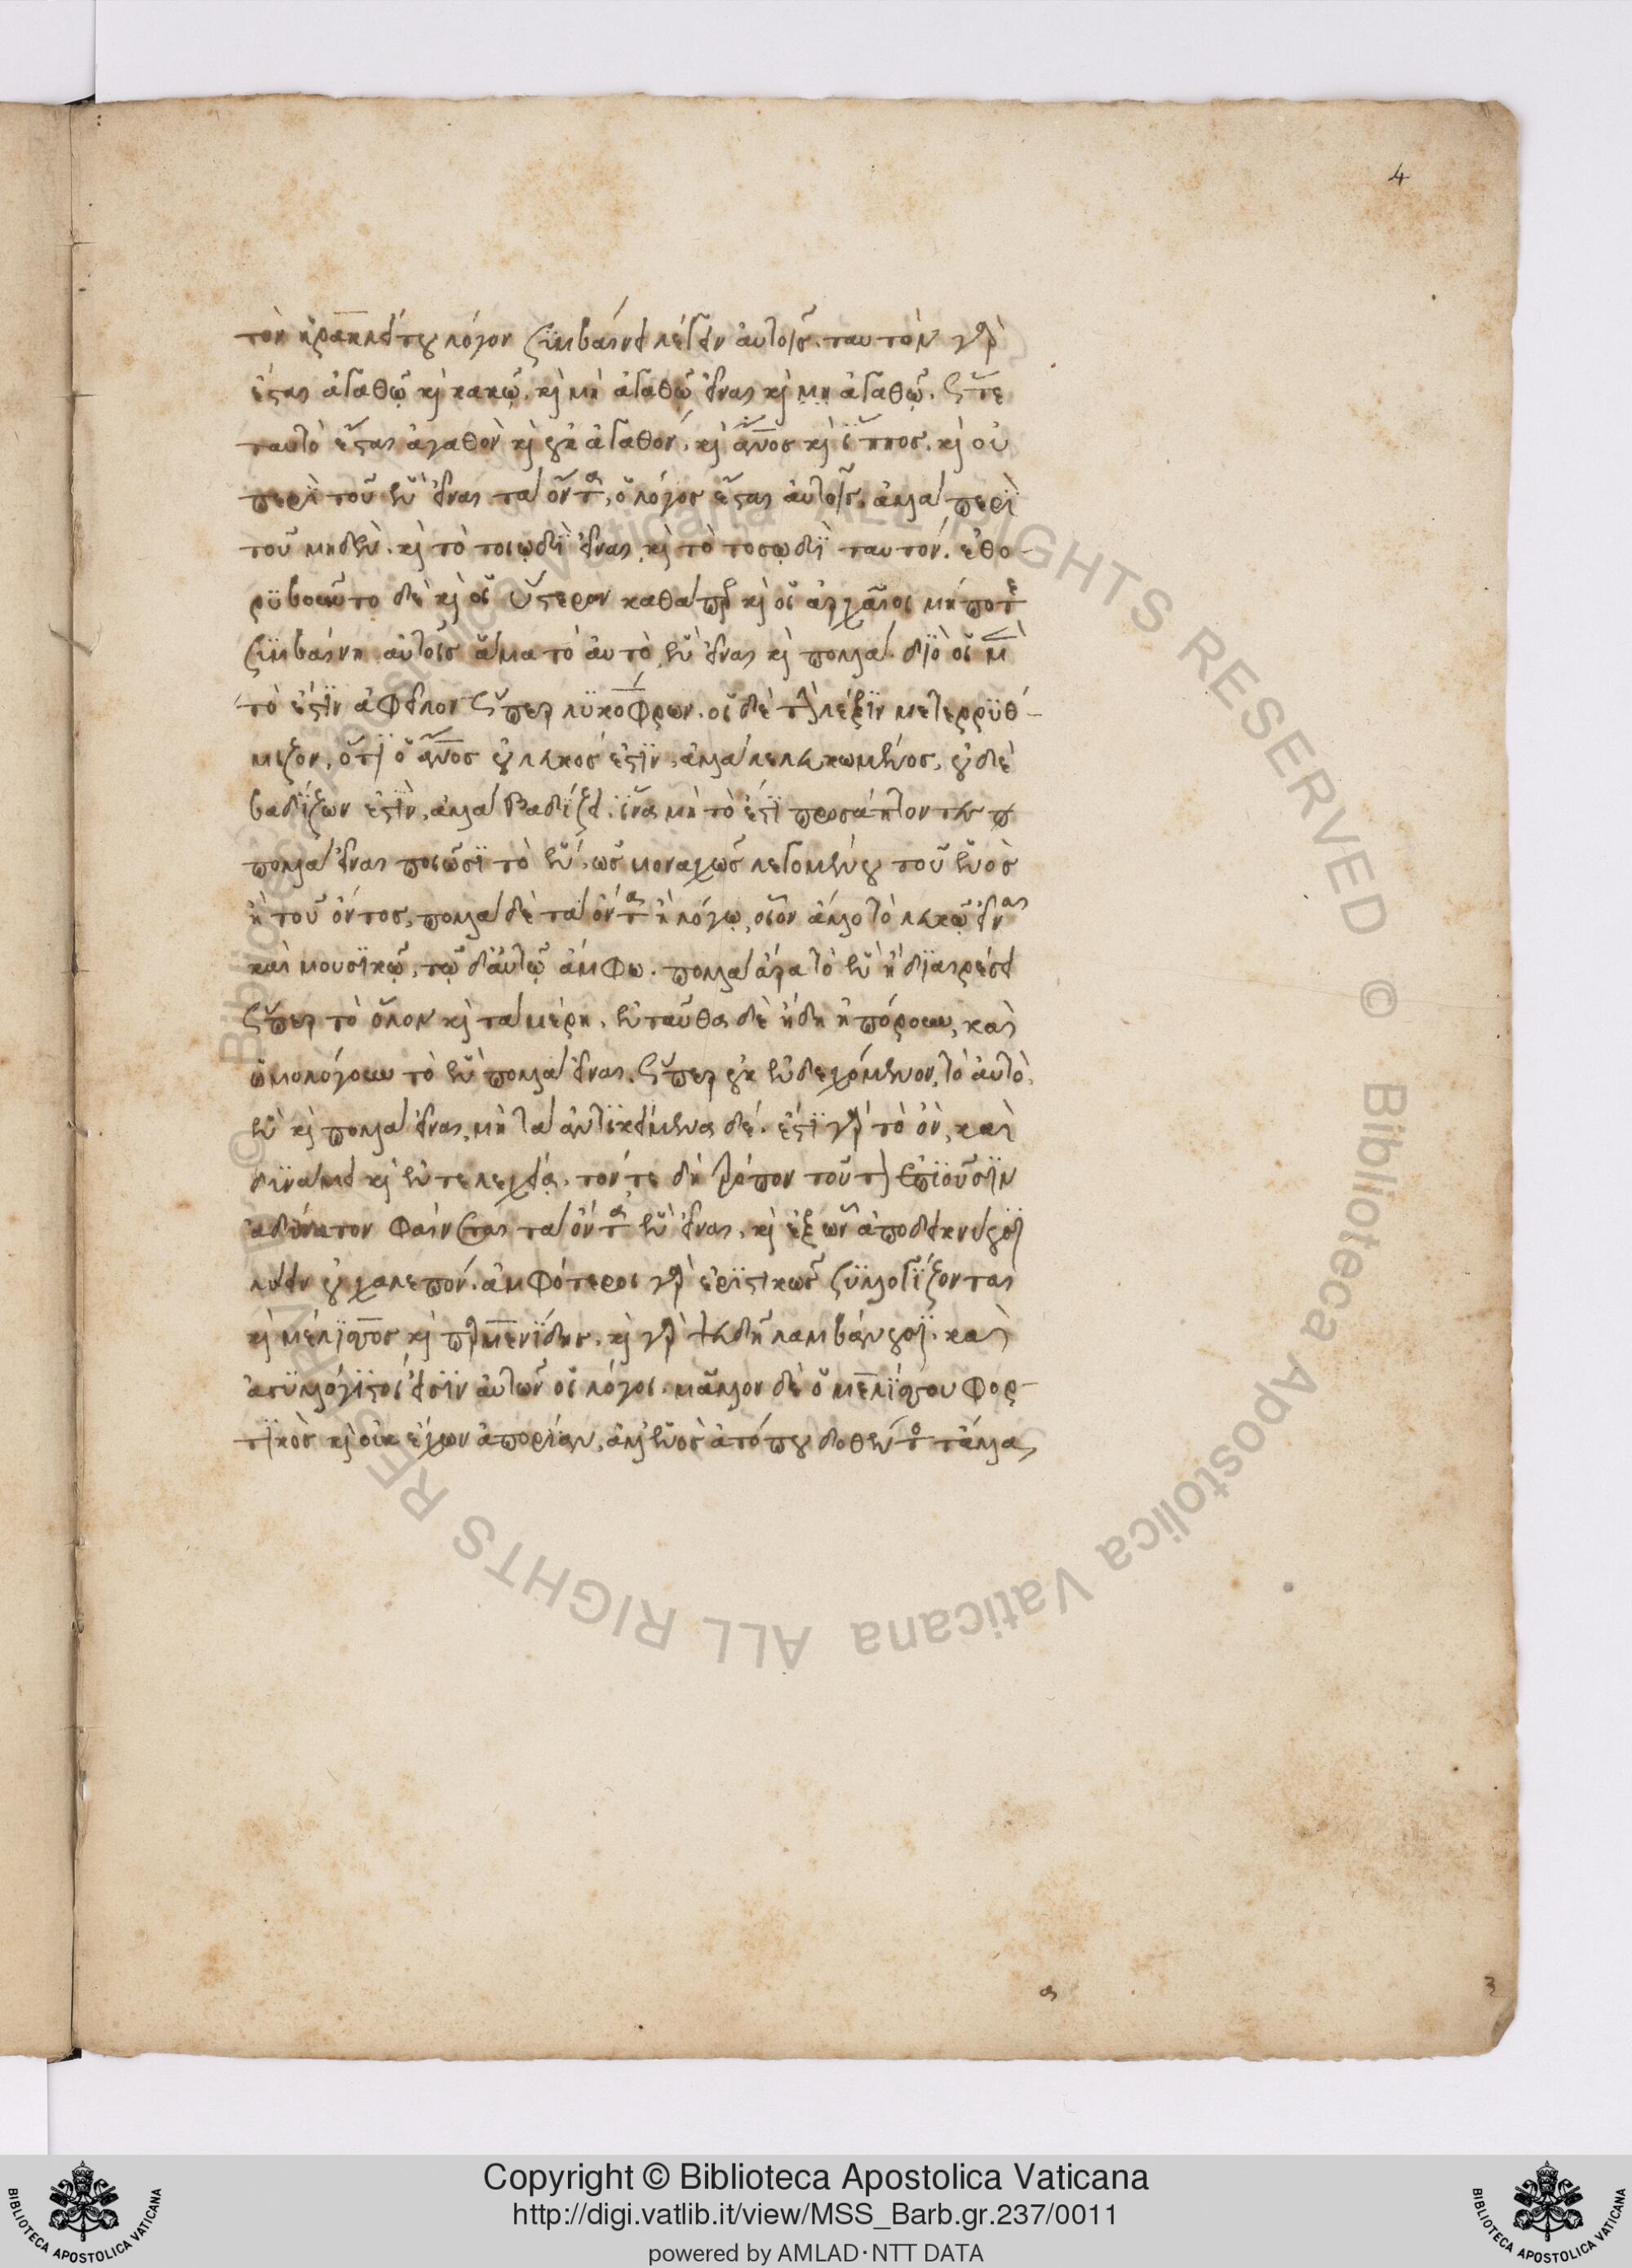 4
τὸν ἡρακλείτου λόγον συμβαίνει λέγειν αὐτοῖς. ταυτὸν γὰρ
ἔσται ἀγαθῷ καὶ κακῷ. καὶ μὴ ἀγαθῷ εἶναι καὶ μὴ ἀγαθῷ. ὥστε
ταυτὸ ἔσται ἀγαθὸν καὶ οὐκ ἀγαθόν. καὶ ἄνος καὶ ἵππος. καὶ οὐ
περὶ τοῦ ἓν εἶναι τὰ ὄντα, ὁ λόγος ἔσται αὐτοῖς. ἀλλὰ περὶ
τοῦ μηδέν. καὶ τὸ τοιῳδὶ εἶναι καὶ τὸ τοσῳδὶ ταυτόν. ἐθο-
ρυβοῦντο δὲ καὶ οἱ ὕστερον καθάπερ καὶ οἱ ἀρχαῖοι μήποτε
συμβαίνη αὐτοῖς ἅμα τὸ αὐτὸ ἓν εἶναι καὶ πολλά. διὸ οἱ μὲν
τὸ ἐστὶν ἀφεῖλον ὥσπερ λυκόφρων. οἱ δὲ τὴν λέξιν μετερρύθ-
μιζον, ὅτι ὁ ἄνος οὐ λευκός ἐστιν, ἀλλὰ λελευκωμένος, οὐδὲ
βαδίζων ἐστὶν, ἀλλὰ βαδίζει. ἵνα μὴ τὸ ἐστὶ προσάπτοντες
πολλὰ εἶναι ποιῶσι τὸ ἕν, ὡς μοναχῶς λεγομένου τοῦ ἑνὸς
ἢ τοῦ ὄντος, πολλὰ δὲ τὰ ὄντα ἢ λόγῳ, οἷον ἄλλο τὸ λευκῷ εἶναι
καὶ μουσικῷ, τῷ δ' αὐτῷ ἄμφω. πολλὰ ἄρα τὸ ἓν ἢ διαιρέσει
ὥσπερ τὸ ὅλον καὶ τὰ μέρη. ἐνταῦθα δὲ ἤδη ἠπόρουν, καὶ
ὡμολόγουν τὸ ἓν πολλὰ εἶναι. ὥσπερ οὐκ ἐνδεχόμενον, τὸ αὐτὸ,
ἓν καὶ πολλὰ εἶναι, μὴ τὰ ἀντικείμενα δέ. ἔστι γὰρ τὸ ὂν, καὶ
δυνάμει καὶ ἐντελεχείᾳ. τόν τε δὴ τρόπον τοῦτον ἐπιοῦσιν
ἀδύνατον φαίνεται τὰ ὄντα ἓν εἶναι, καὶ ἐξ ὧν ἀποδεικνύουσι
λύειν οὐ χαλεπόν. ἀμφότεροι γὰρ ἐριστικῶς συλλογίζονται
καὶ μέλισσος καὶ παρμενίδης. καὶ γὰρ ψευδῆ λαμβάνουσι. καὶ
ἀσυλλόγιστοί εἰσιν αὐτῶν οἱ λόγοι. μᾶλλον δὲ ὁ μελίσσου φορ-
τικὸς καὶ οὐκ ἔχων ἀπορίαν, ἀλλ' ἑνὸς ἀτόπου δοθέντος τἄλλα
3
Copyright © Biblioteca Apostolica Vaticana
http://digi.vatlib.it/view/MSS_Barb.gr.237/0011
powered by AMLAD·NTT DATA
BIBLIOTECA APOSTOLICA VATICANA
BIBLIOTECA APOSTOLICA VATICANA
© Biblioteca Apostolica Vaticana ALL RIGHTS RESERVED
© Biblioteca Apostolica Vaticana ALL RIGHTS RESERVED